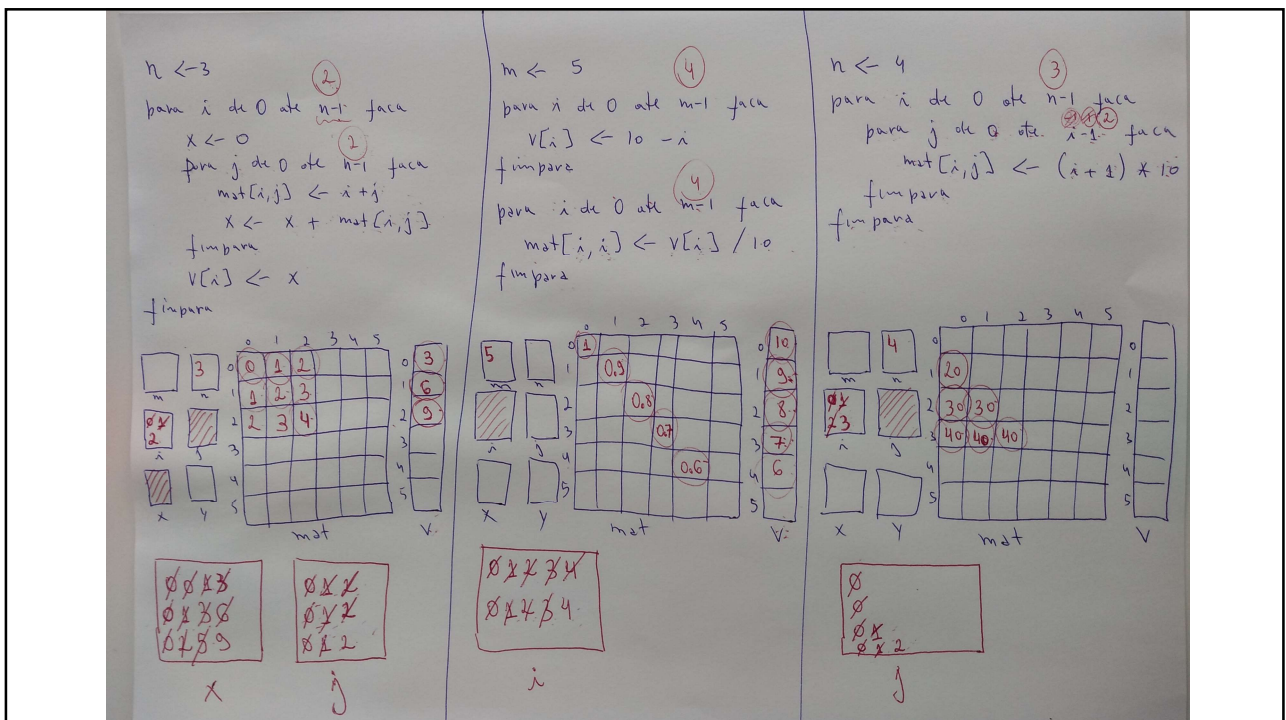 n <- 3
2
para i de 0 até n-1 faca
x <- 0
2
para j de 0 até n-1 faca
mat[i,j] <- i+j
x <- x + mat[i,j]
fimpara
V[i] <- x
fimpara
0 1 2 3 4 5
0 0 1 2
1 1 2 3
2 2 3 4
3
4
5
m
3
n
0 1 2
i
j
x
y
mat
0 3
1 6
2 9
3
4
5
V
0 0 1 3
0 1 3 6
0 2 5 9
x
0 1 2
0 1 2
0 1 2
j
m <- 5
4
para i de 0 até m-1 faca
V[i] <- 10 - i
fimpara
4
para i de 0 até m-1 faca
mat[i,i] <- V[i] / 10
fimpara
0 1 2 3 4 5
0 1
1 0.9
2 0.8
3 0.7
4 0.6
5
5
m
n
i
j
x
y
mat
0 10
1 9
2 8
3 7
4 6
5
V
0 1 2 3 4
0 1 2 3 4
i
n <- 4
3
para i de 0 até n-1 faca
2
para j de 0 até i-1 faca
mat[i,j] <- (i+1) * 10
fimpara
fimpara
0 1 2 3 4 5
0
1 20
2 30 30
3 40 40 40
4
5
m
4
n
0 1
2 3
i
j
x
y
mat
0
1
2
3
4
5
V
0
0
0 1
0 1 2
j